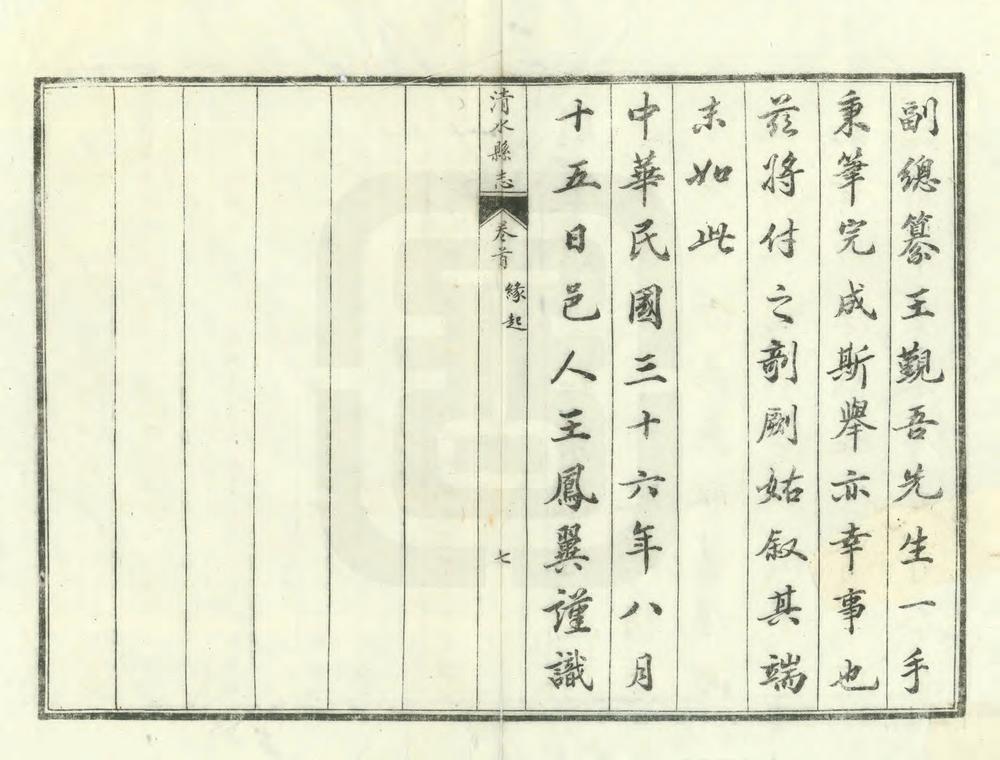 副總纂王觐吾先生一手
秉筆完成斯舉亦幸事也
茲將付之剞劂姑叙其端
末如此
中華民國三十六年八月
十五日邑人王鳳翼謹識
清水縣志
卷首
緣起
七